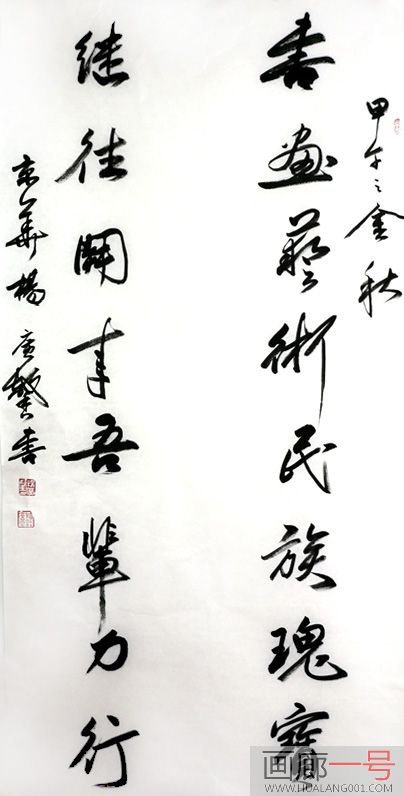 甲午之金秋
書畫藝術民族瑰寶
继往開来吾輩力行
京華楊广馨書
画廊一号
WWW.HUALANG001.COM